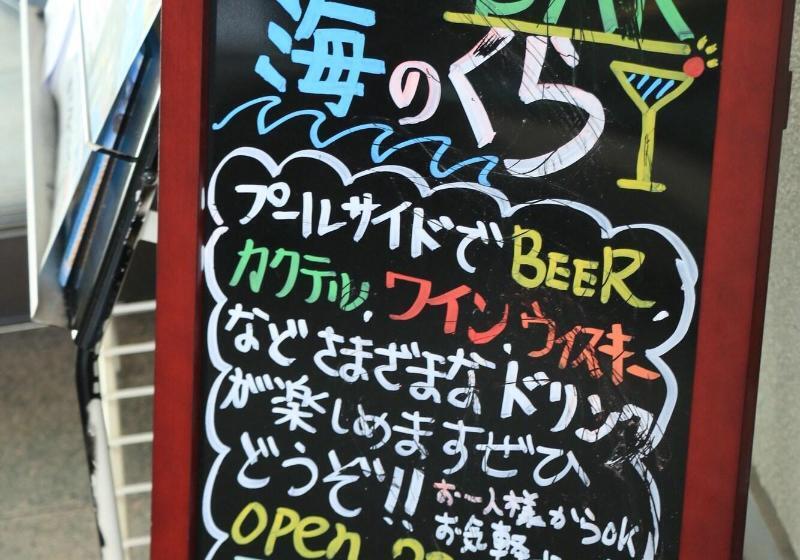 BAR
海のくら
プールサイドでBEER
カクテル,ワイン,ウィスキー
などさまざまなドリンク
が楽しめますぜひ
どうぞ!!
お一人様からOK
お気軽に
open